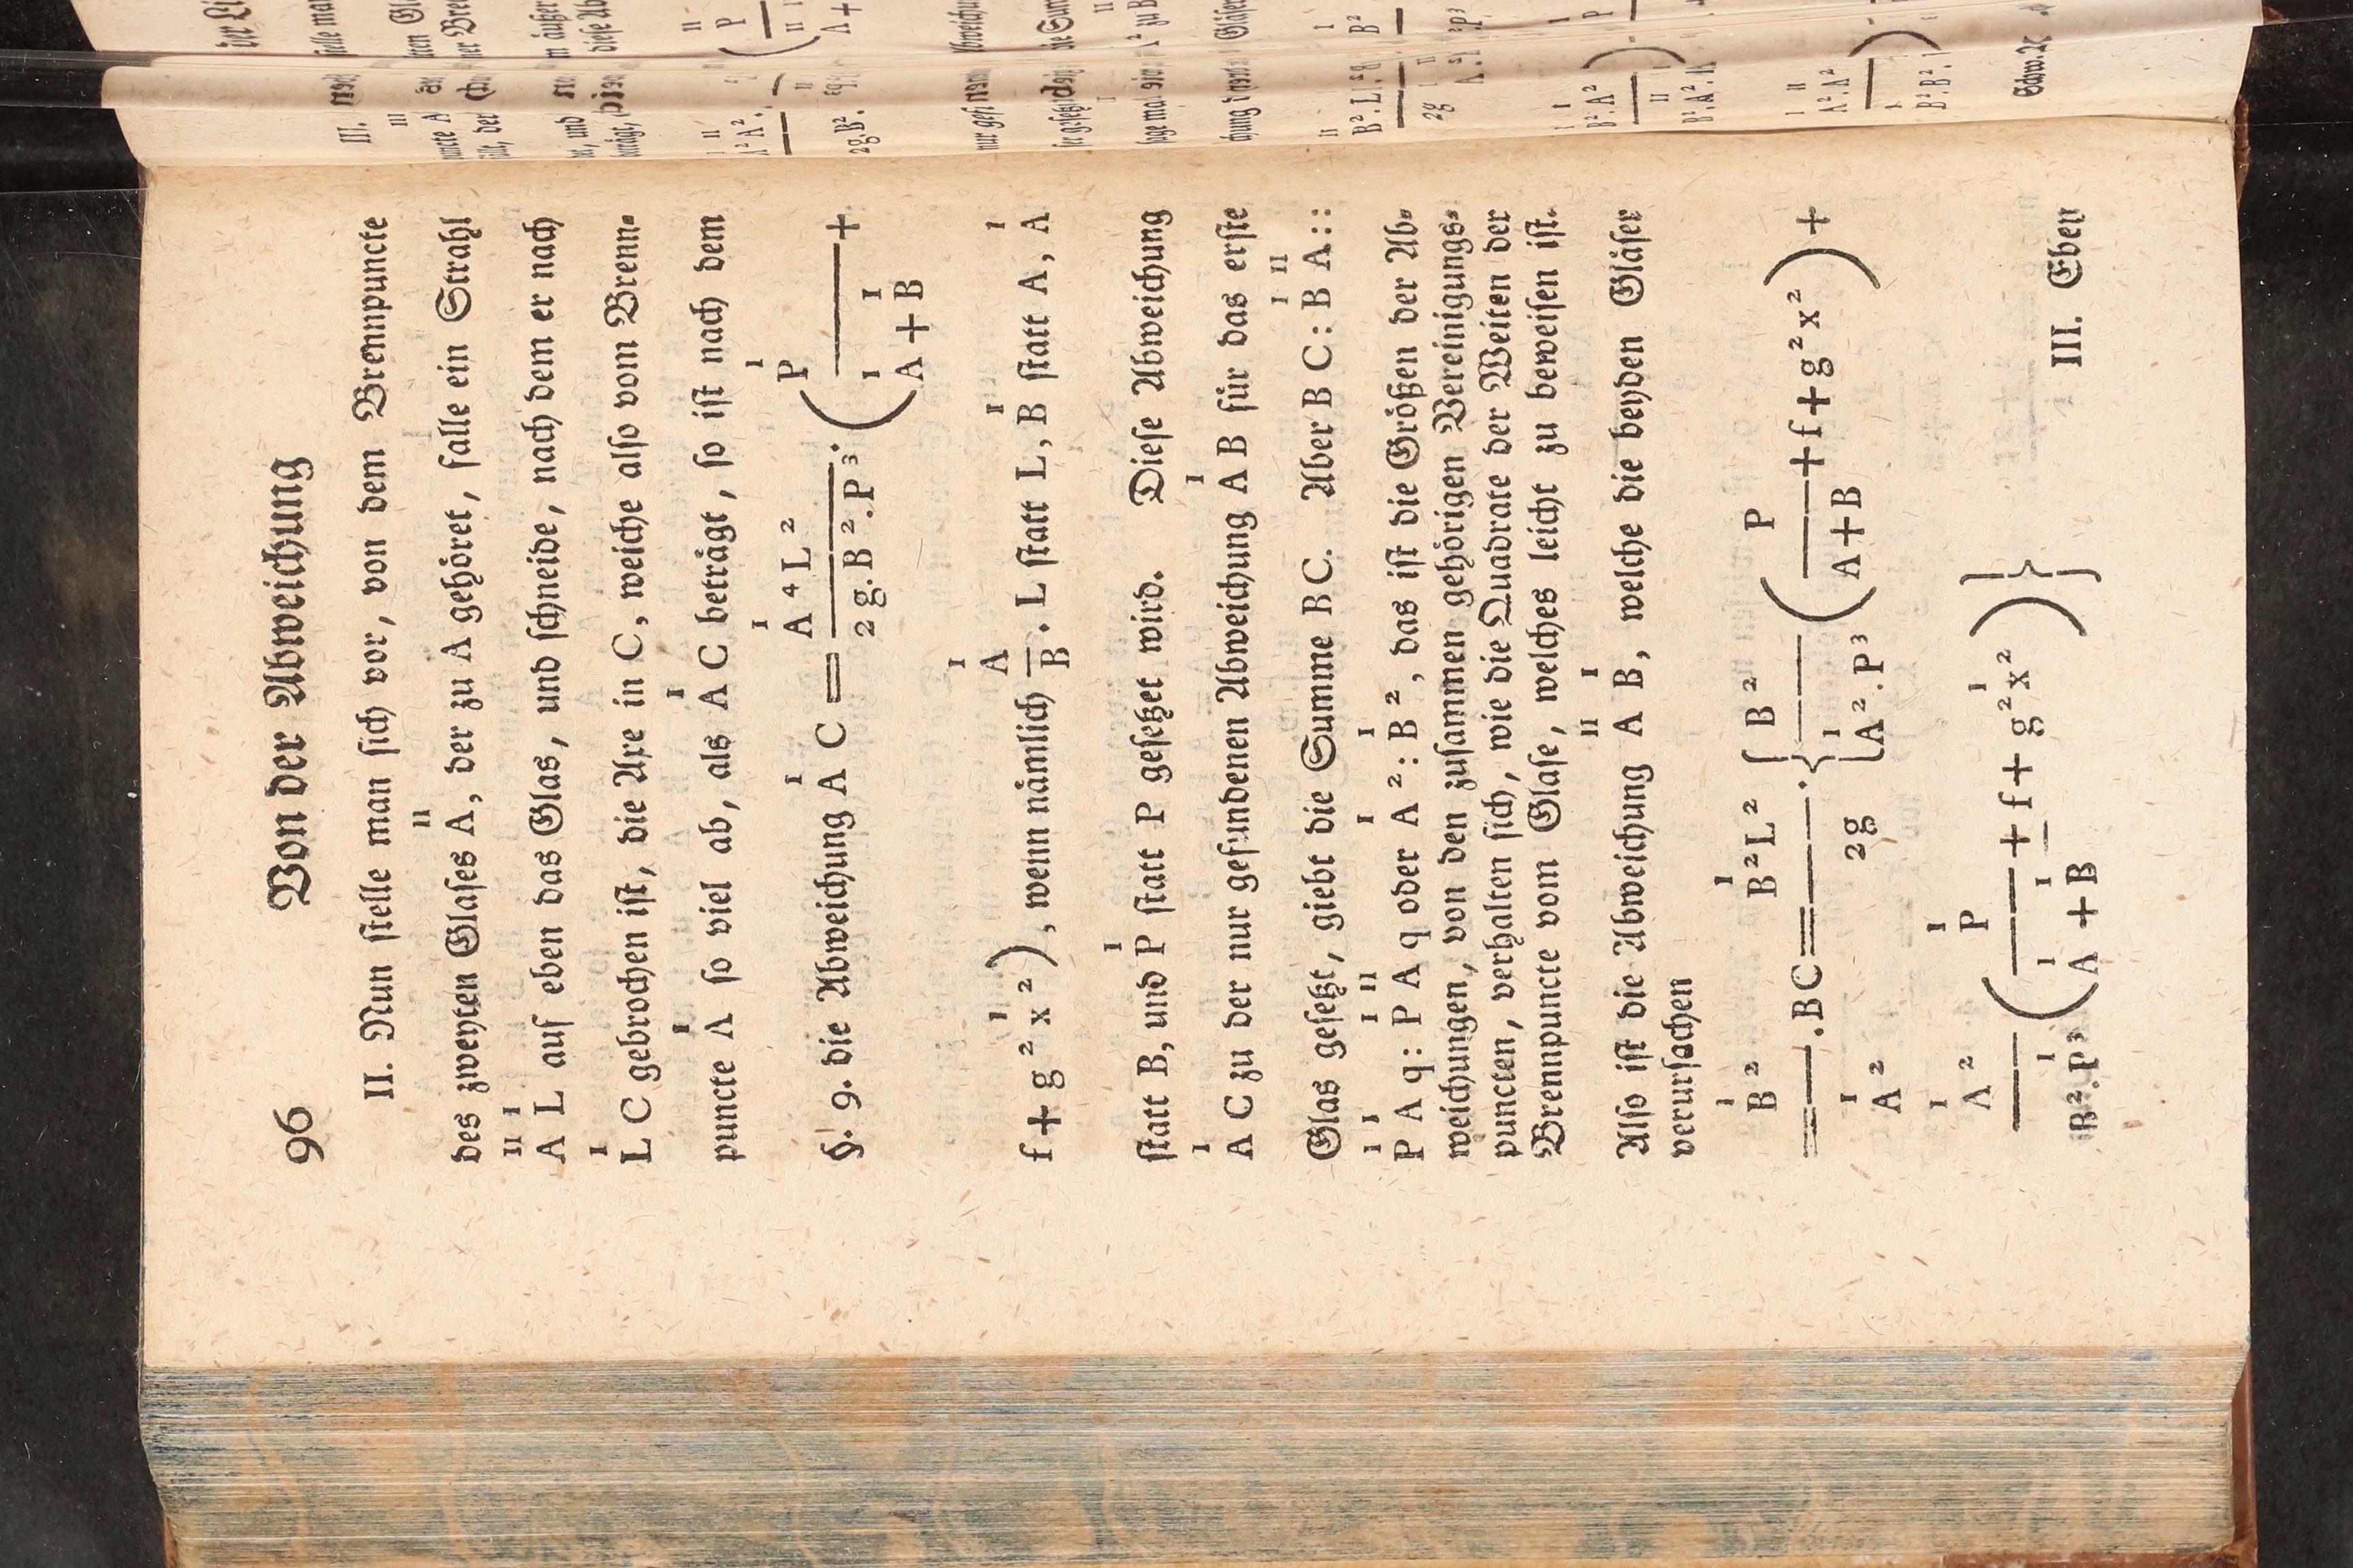 96 Von der Abweichung
II. Nun stelle man sich vor, von dem Brennpuncte
des zweyten Glases A, der zu A gehöret, falle ein Strahl
A L auf eben das Glas, und schneide, nach dem er nach
L C gebrochen ist, die Axe in C, welche also vom Brenn-
puncte A so viel ab, als A C beträgt, so ist nach dem
§. 9. die Abweichung A C = A⁴L² / 2g.B².P³ · ( P / A + B +
f + g² x² ), wenn nämlich A / B . L statt L, B statt A, A
statt B, und P statt P gesetzet wird. Diese Abweichung
A C zu der nur gefundenen Abweichung A B für das erste
Glas gesetzt, giebt die Summe B C. Aber B C : B A ::
P A q : P A q oder A² : B², das ist die Größen der Ab-
weichungen, von den zusammen gehörigen Vereinigungs-
puncten, verhalten sich, wie die Quadrate der Weiten der
Brennpuncte vom Glase, welches leicht zu beweisen ist.
Also ist die Abweichung A B, welche die beyden Gläser
verursachen
= B² / A² . B C = B²L² / 2g · { B² / A².P³ ( P / A+B + f + g²x² ) +
A² / B².P³ ( P / A + B + f + g²x² ) }
III. Eben